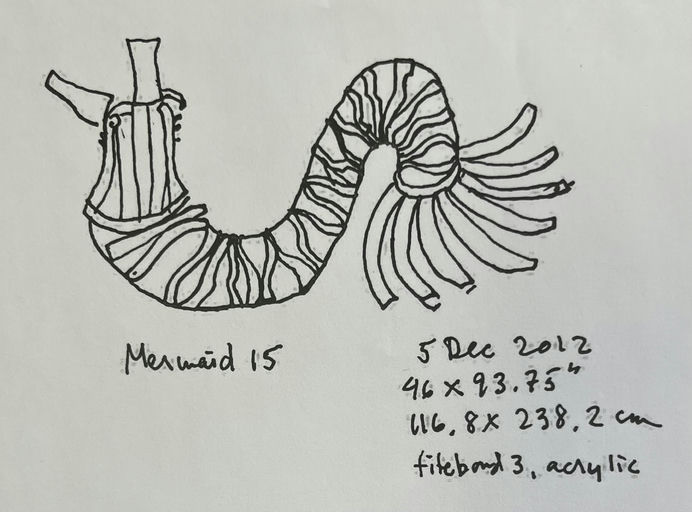 Mermaid 15
5 Dec 2012
46 x 93.75"
116.8 x 238.2 cm
titebond 3, acrylic